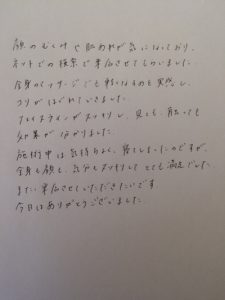 顔のむくみや肌あれが気になっており、
ネットでの検索で来店させてもらいました。
全身のマッサージでも軽くなるのを実感し、
コリがほぐれていきました。
フェイスラインがスッキリし、見ても、触っても
効果が分かりました。
施術中は気持ちよく、寝てしまったのですが、
全身も顔も、気分もスッキリして とても満足でした
また、来店させていただきたいです
今日はありがとうございました。